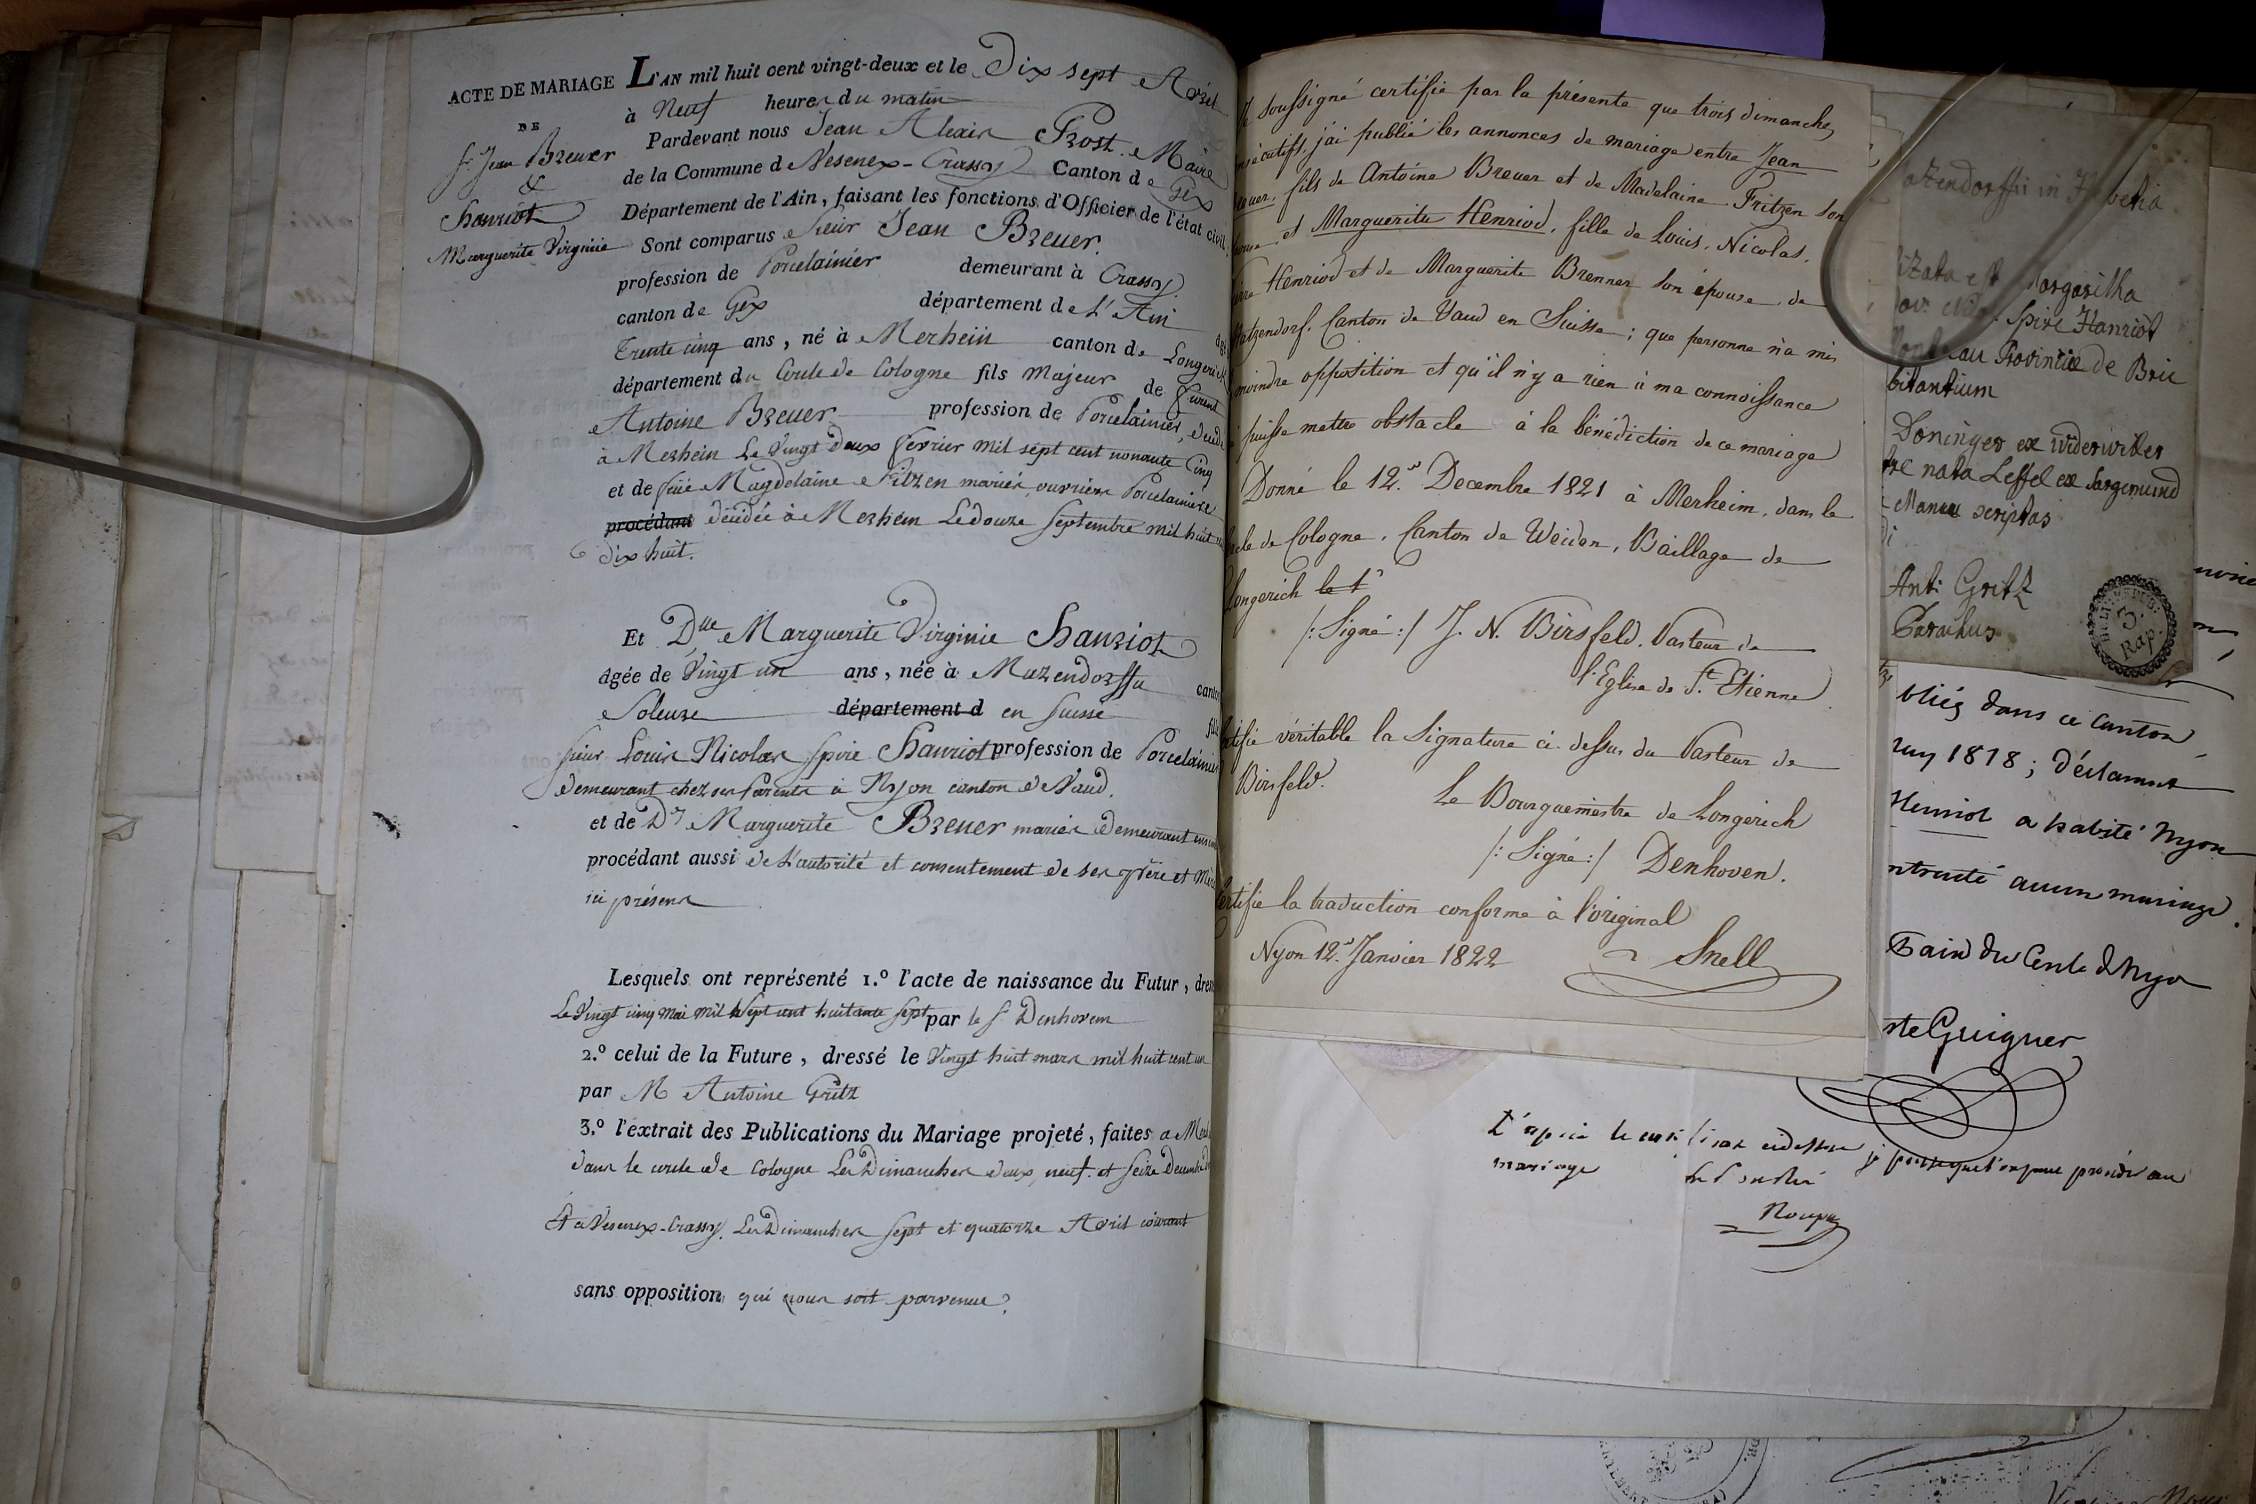 ACTE DE MARIAGE
DE
Sr. Jean Breuer
&
Hanriot
Marguerite Virginie
L'AN mil huit cent vingt-deux et le Dix sept Avril
à Neuf heures du matin
Pardevant nous Jean Alexis Prost. Maire
de la Commune d Vesenex-Crassy Canton de Gex
Département de l'Ain, faisant les fonctions d'Officier de l'état civil.
Sont comparus Sieur Jean Breuer.
profession de Porcelainier demeurant à Crassy.
canton de Gex département de L'Ain
Trente cinq ans, né à Merhein canton de Longerich
département du Cercle de Cologne fils Majeur de furent
Antoine Breuer profession de Porcelainier,
à Merhein Le Vingt Deux fevrier mil sept cent nonante Cinq
et de feüe Magdelaine Fitzen mariés, ouvrière Porcelainiere
procédant décédée à Merhein Le douze Septembre mil huit
dix huit.
Et Dlle Marguerite Virginie Hanriot
âgée de Vingt un ans, née à Mazendorffu canton
Soleure département d en Suisse
Sieur Louis Nicolas Spire Hanriot profession de Porcelainier
demeurant chez ses Parents à Nyon canton de Vaud.
et de De Marguerite Breuer mariés demeurant
procédant aussi de L'autorité et consentement de ses Père et Mère
ici présens
Lesquels ont représenté 1.º l'acte de naissance du Futur,
Le Vingt cinq Mai Mil Sept cent huitante Sept par le Sr Denhoven
2.º celui de la Future, dressé le Vingt huit mars mil huit cent un
par M Antoine Gritz
3.º l'extrait des Publications du Mariage projeté, faites a
dans le cercle de Cologne Les Dimanches deux, neuf. et Seize Decembre
Et à Vesenex-Crassy. Les Dimanches Sept et quatorze Avril courant
sans opposition qui nous soit parvenue.
soussigné certifie par la présente que trois dimanches
consécutifs, j'ai publié les annonces de mariage entre Jean
Breuer, fils de Antoine Breuer et de Madelaine Fritzen son
épouse et Marguerite Henriod, fille de Louis, Nicolas,
Henriod et de Marguerite Brenner son épouse, de
Matzendorf, Canton de Vaud en Suisse; que personne n'a mis
moindre opposition et qu'il n'y a rien à ma connoissance
puisse mettre obstacle à la bénédiction de ce mariage
Donné le 12.e Decembre 1821 à Merheim, dans le
cercle de Cologne, Canton de Weiden, Baillage de
Longerich le 1
/: Signé :/ J. N. Birsfeld. Pasteur de
l'Eglise de St. Etienne.
véritable la Signature ci dessus du Pasteur de
Birsfeld.
Le Bourguemestre de Longerich
/: Signé :/ Denhoven.
Certifie la traduction conforme à l'original
Nyon 12.e Janvier 1822
Snell
Margaritha
Spire Hanriot
Provintiæ de Brie
bitantium
Doninger ex widerwiller
nata Leffel ex Sargemund
Manu scriptas
Ant: Gritz
Parochus
3.
Rap.
bliés dans ce Canton
1818; Déclarant
Henriot a habité Nyon
ntracté aucun mariage.
du Cercle d Nyo
Guiguer
mariage